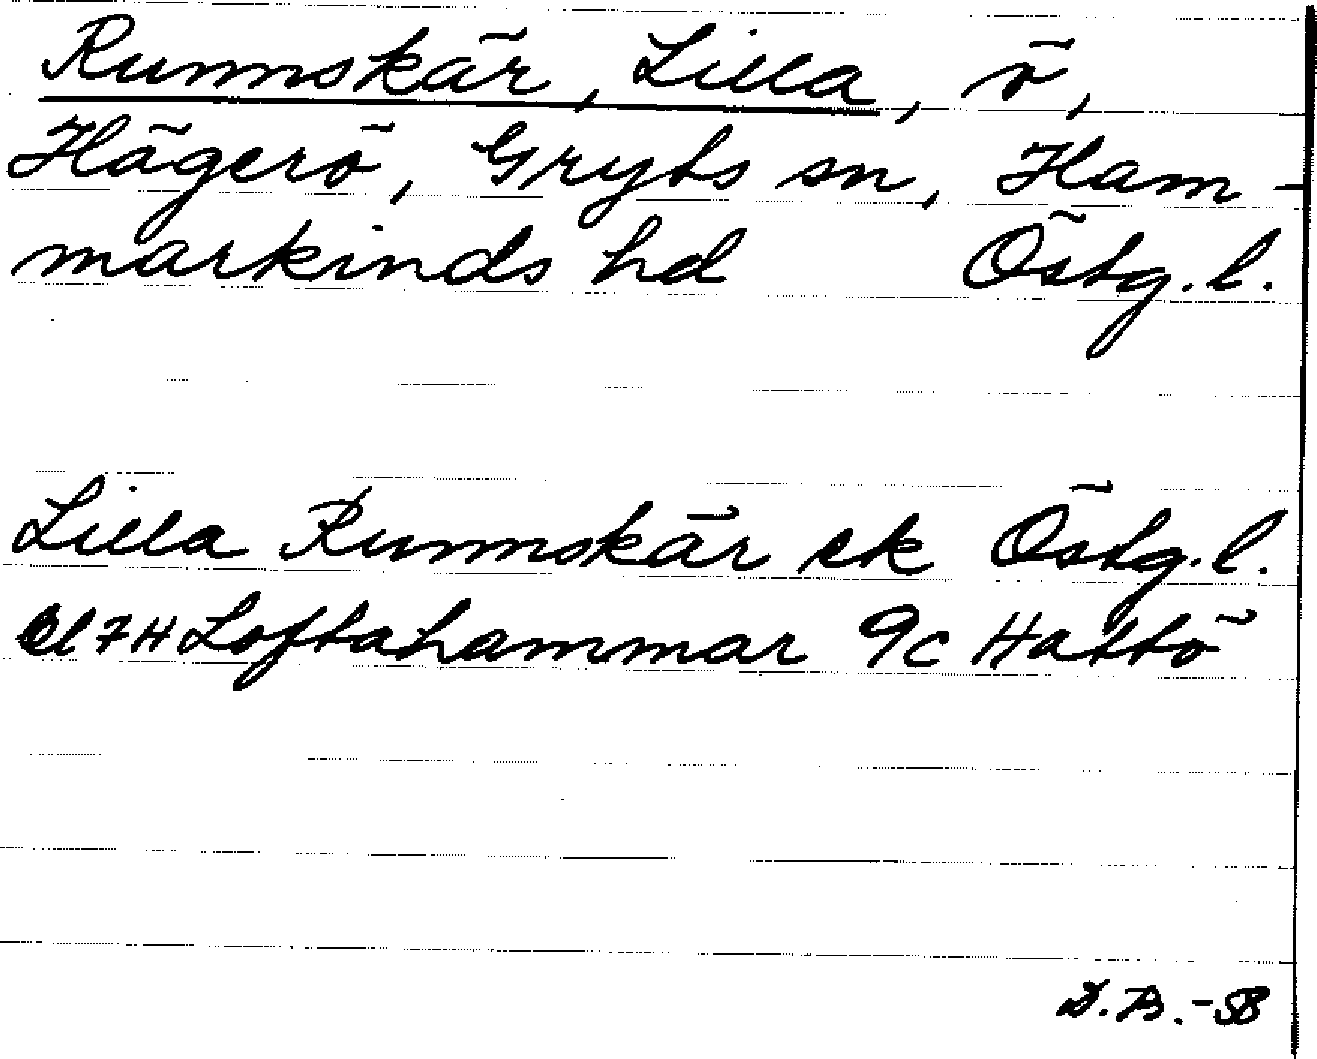 Runnskär, Lilla, ö,
Hägerö, Gryts sn, Ham-
markinds hd Östg. l.
Lilla Runnskär ek Östg. l.
bl 7H Loftahammar 9c Hattö
D.B.-58